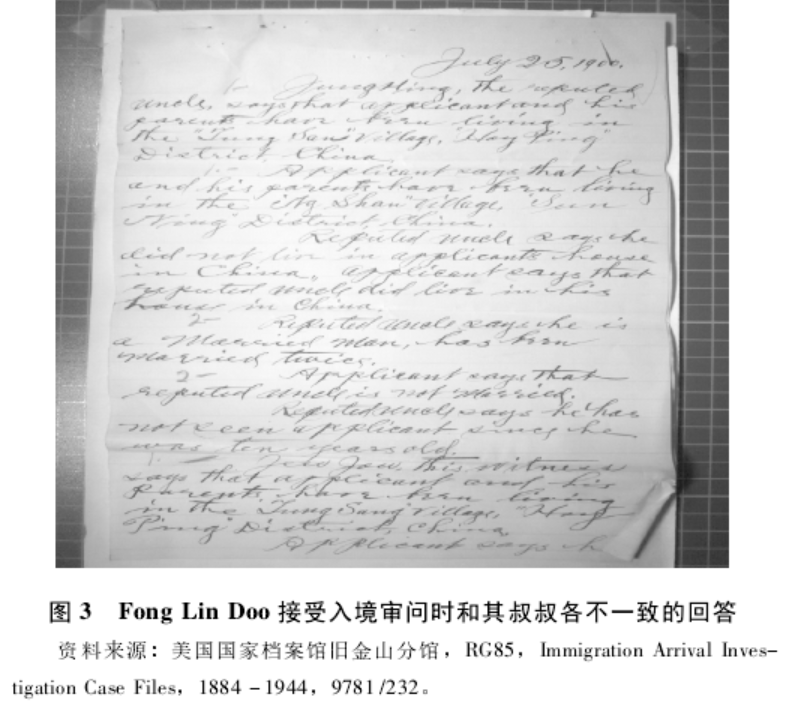 July 25, 1900.
1- Jung Hing, the reputed
uncle, says that applicant and his
parents have been living in
the "Tung San" Village, "Hoy Ping"
District, China.
1- Applicant says that he
and his parents have been living
in the "Ng Shan" Village, "Sun
Ning" District, China.
Reputed uncle says he
did not live in applicants house
in China, applicant says that
reputed uncle did live in his
house in China.
2- Reputed uncle says he is
a Married man, has been
married twice.
2- Applicant says that
reputed uncle is not married.
Reputed uncle says he has
not seen applicant since he
was ten years old.
Jow, this witness
says that applicant and his
Parents, have been living
in the "Tung Sang" Village, "Hoy
Ping" District, China.
Applicant says h
图 3 Fong Lin Doo 接受入境审问时和其叔叔各不一致的回答
资料来源：美国国家档案馆旧金山分馆，RG85，Immigration Arrival Inves-
tigation Case Files，1884 -1944，9781/232。